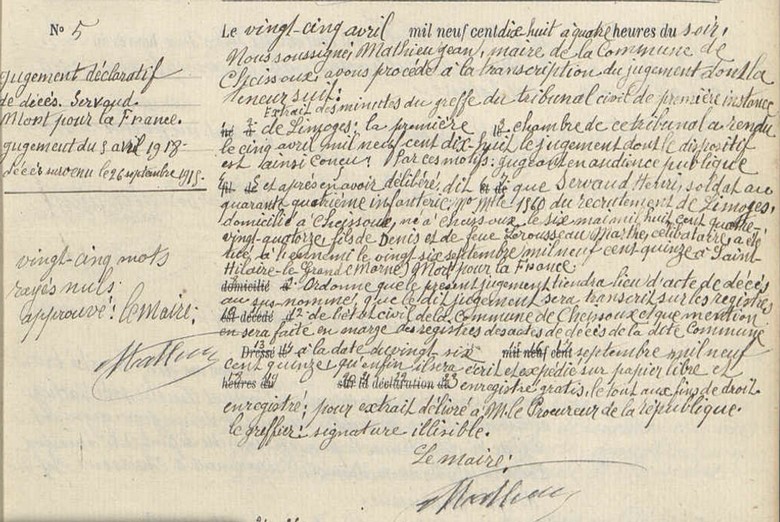 N° 5
Jugement déclaratif
de décès. Servaud.
Mort pour la France.
jugement du 5 avril 1918-
décès survenu le 26 septembre 1915.
vingt-cinq mots
rayés nuls.
approuvé: le maire:
Mathieu
Le vingt-cinq avril mil neuf cent dix huit à quatre heures du soir,
Nous soussigné, Mathieu Jean, maire de la Commune de
Cheissoux, avons procédé à la transcription du jugement dont la
teneur suit:
Extrait des minutes du greffe du tribunal civil de première instance
de Limoges: la première chambre de ce tribunal a rendu
le cinq avril mil neuf cent dix-huit le jugement dont le dispositif
est ainsi conçu: Par ces motifs: jugeant en audience publique
et après en avoir délibéré, dit que Servaud Henri, soldat au
quarante quatrième infanterie, No Mle 1560 du recrutement de Limoges,
domicilié à Cheissoux, né à Cheissoux, le six mai mil huit cent quatre-
vingt-quatorze fils de Denis et de feue Larousseau Marthe, célibataire, a été
tué, à l'ennemi le vingt-six septembre mil neuf cent quinze à Saint-
Hilaire-le Grand (Marne) Mort pour la France
domicilié Ordonne que le présent jugement tiendra lieu d'acte de décès
au sus-nommé, que le dit jugement sera transcrit sur les registres
est décédé de l'état civil de la Commune de Cheissoux et que mention
en sera faite en marge des registres des actes de décès de la dite Commune
Dressé à la date du vingt six mil neuf cent septembre mil neuf
cent quinze; qu'enfin il sera écrit et expédié sur papier libre et
heures du sur la déclaration de enregistré gratis, le tout aux fins de droit.
enregistré; pour extrait délivré à M. le Procureur de la république.
le greffier: signature illisible.
Le maire:
Mathieu